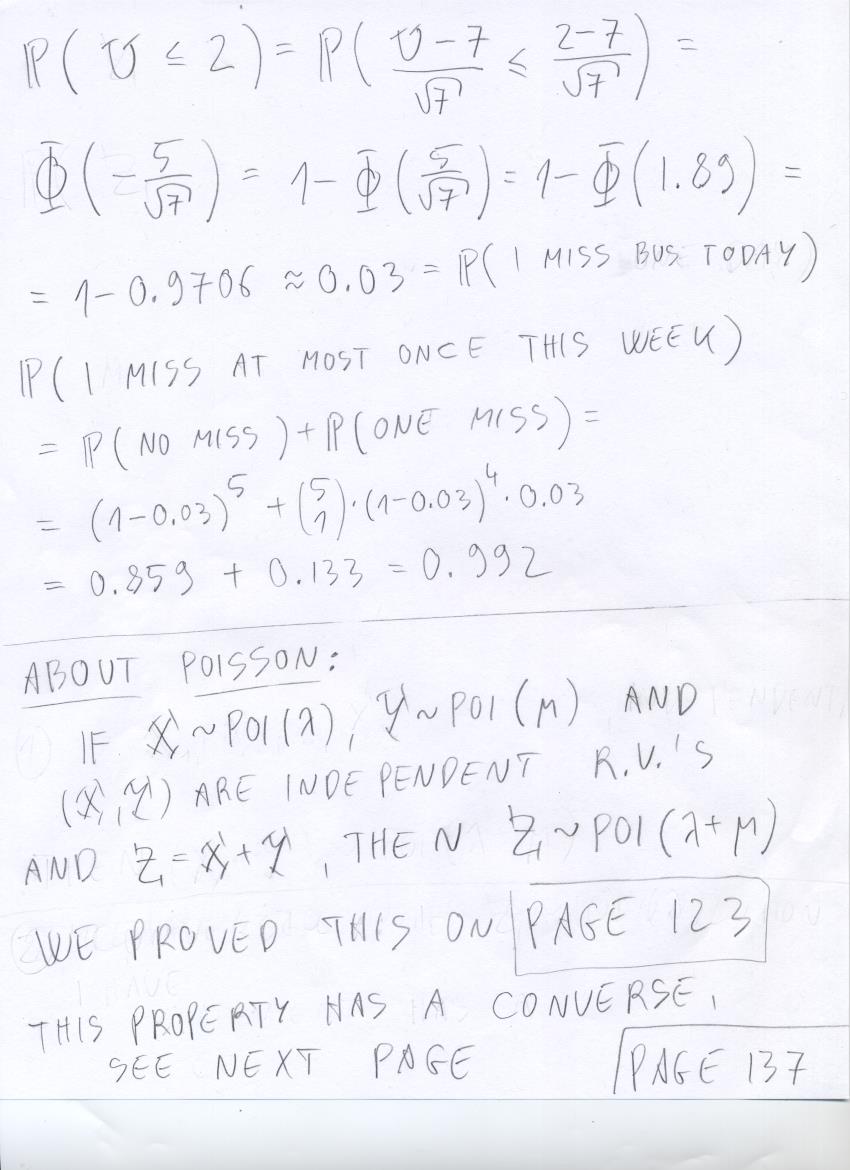 ℙ( U ≤ 2 ) = ℙ( (U−7)/√7 ≤ (2−7)/√7 ) =
Φ( −5/√7 ) = 1 − Φ( 5/√7 ) = 1 − Φ( 1.89 ) =
= 1 − 0.9706 ≈ 0.03 = ℙ( I MISS BUS TODAY )
ℙ( I MISS AT MOST ONCE THIS WEEK )
= ℙ( NO MISS ) + ℙ( ONE MISS ) =
= (1−0.03)^5 + (5 1)·(1−0.03)^4 · 0.03
= 0.859 + 0.133 = 0.992
ABOUT POISSON:
IF X ~ POI(λ), Y ~ POI(μ) AND
(X,Y) ARE INDEPENDENT R.V.'S
AND Z = X + Y, THEN Z ~ POI(λ+μ)
WE PROVED THIS ON PAGE 123
THIS PROPERTY HAS A CONVERSE,
SEE NEXT PAGE PAGE 137